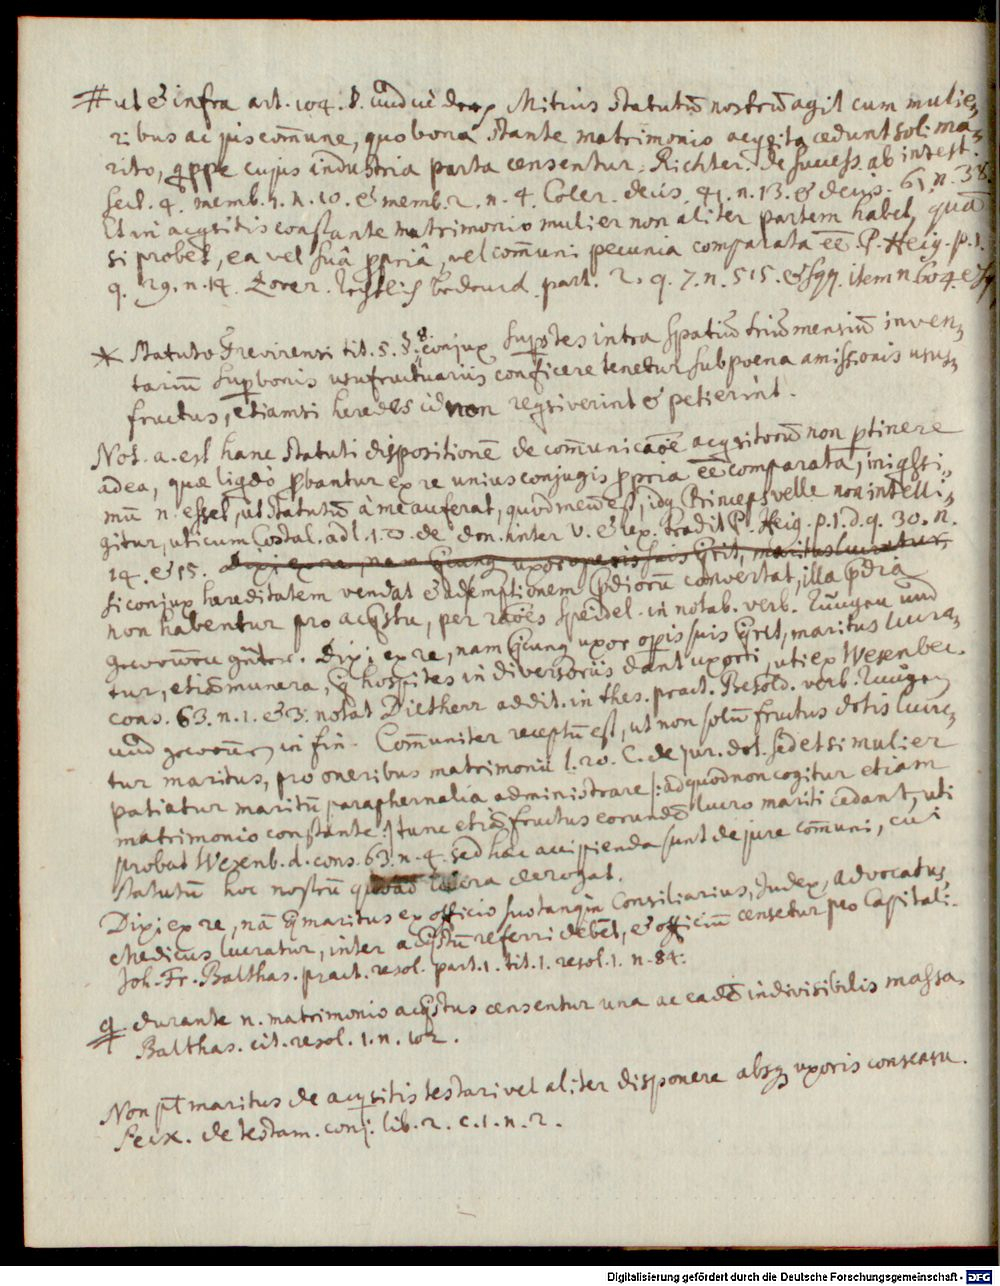 # ut & infra art. 104. §. Mitius statutū nostrū agit cum mulie,
ribus ac jus com̄une, quo bona stante matrimonio acqsita cedunt soli ma,
rito, qppe cujus industria parta censentur. Richter. de success. ab intest.
sect. 4. memb. 1. n. 10. & memb. 2. n. 4. Coler. decis. 41. n. 13. & decis. 61. n. 38.
Et in acqsitis constante matrimonio mulier non aliter partem habet, quā
si probet, ea vel suâ ppriâ, vel com̄uni pecunia comparata eē. P. Heig. p. 1.
q. 29. n. 14. part. 2. q. 7. n. 515. & sqq. item n. 604 & sq
* Statuto Trevirensi tit. 5. §. 8. conjux supstes intra spatiū triū mensiū inven,
tariū sup bonis usufructuariis conficere tenetur sub poena amissionis usus,
fructus, etiamsi heredes id non reqsiverint & petierint.
Not. a. est hanc statuti dispositionē de com̄unicaōe acqsitorū non ptinere
ad ea, quæ liqdò pbantur ex re unius conjugis ppria eē comparata, iniqssi,
mū n. esset, ut statutū à me auferat, quod meū est, idq Princeps velle non intelli,
gitur, uti cum Costal. ad l. 1. D. de don. inter V. & Ux. tradit P. Heig. p. 1. d. q. 30. n.
14. & 15. Dixi ex re, nam qcunq uxor operis suis qrit, maritus lucratur,
si conjux hereditatem vendat & ad emptionem pdiorū convertat, illa pdia
non habentur pro acqstu, per raōes Speidel. in notab. verb. Errungen und
gewonnen güter. Dixi, ex re, nam qcunq uxor opis suis qrit, maritus lucra,
tur, etiā munera, q hospites in diversoriis dant uxori, uti ex Wesenbec.
cons. 63. n. 1. & 3. notat Dietherr addit. in thes. pract. Besold. verb. Errungen
und gewonnen in fin. Com̄uniter receptū est, ut non solū fructus dotis lucre,
tur maritus, pro oneribus matrimonii l. 20. C. de jur. dot. sed et si mulier
patiatur maritū paraphernalia administrare /: ad quod non cogitur etiam
matrimonio constante :/ tunc etiā fructus eorundē lucro mariti cedant, uti
probat Wesenb. d. cons. 63. n. 4. sed hæc accipienda sunt de jure com̄uni, cui
statutū hoc nostrū quoad lucra derogat.
Dixi ex re, nā q maritus ex officio suo tanqm Consiliarius, Judex, advocatus,
Medicus lucratur, inter acqstū referri debet, & officiū censetur pro Capitali.
Joh. Fr. Balthas. pract. resol. part. 1. tit. 1. resol. 1. n. 84.
q durante n. matrimonio acqstus censentur una ac eadē indivisibilis massa.
Balthas. cit. resol. 1. n. 102.
Non pt maritus de acqsitis testari vel aliter disponere absq uxoris consensu.
de testam. conj. lib. 2. c. 1. n. 2.
Digitalisierung gefördert durch die Deutsche Forschungsgemeinschaft - DFG